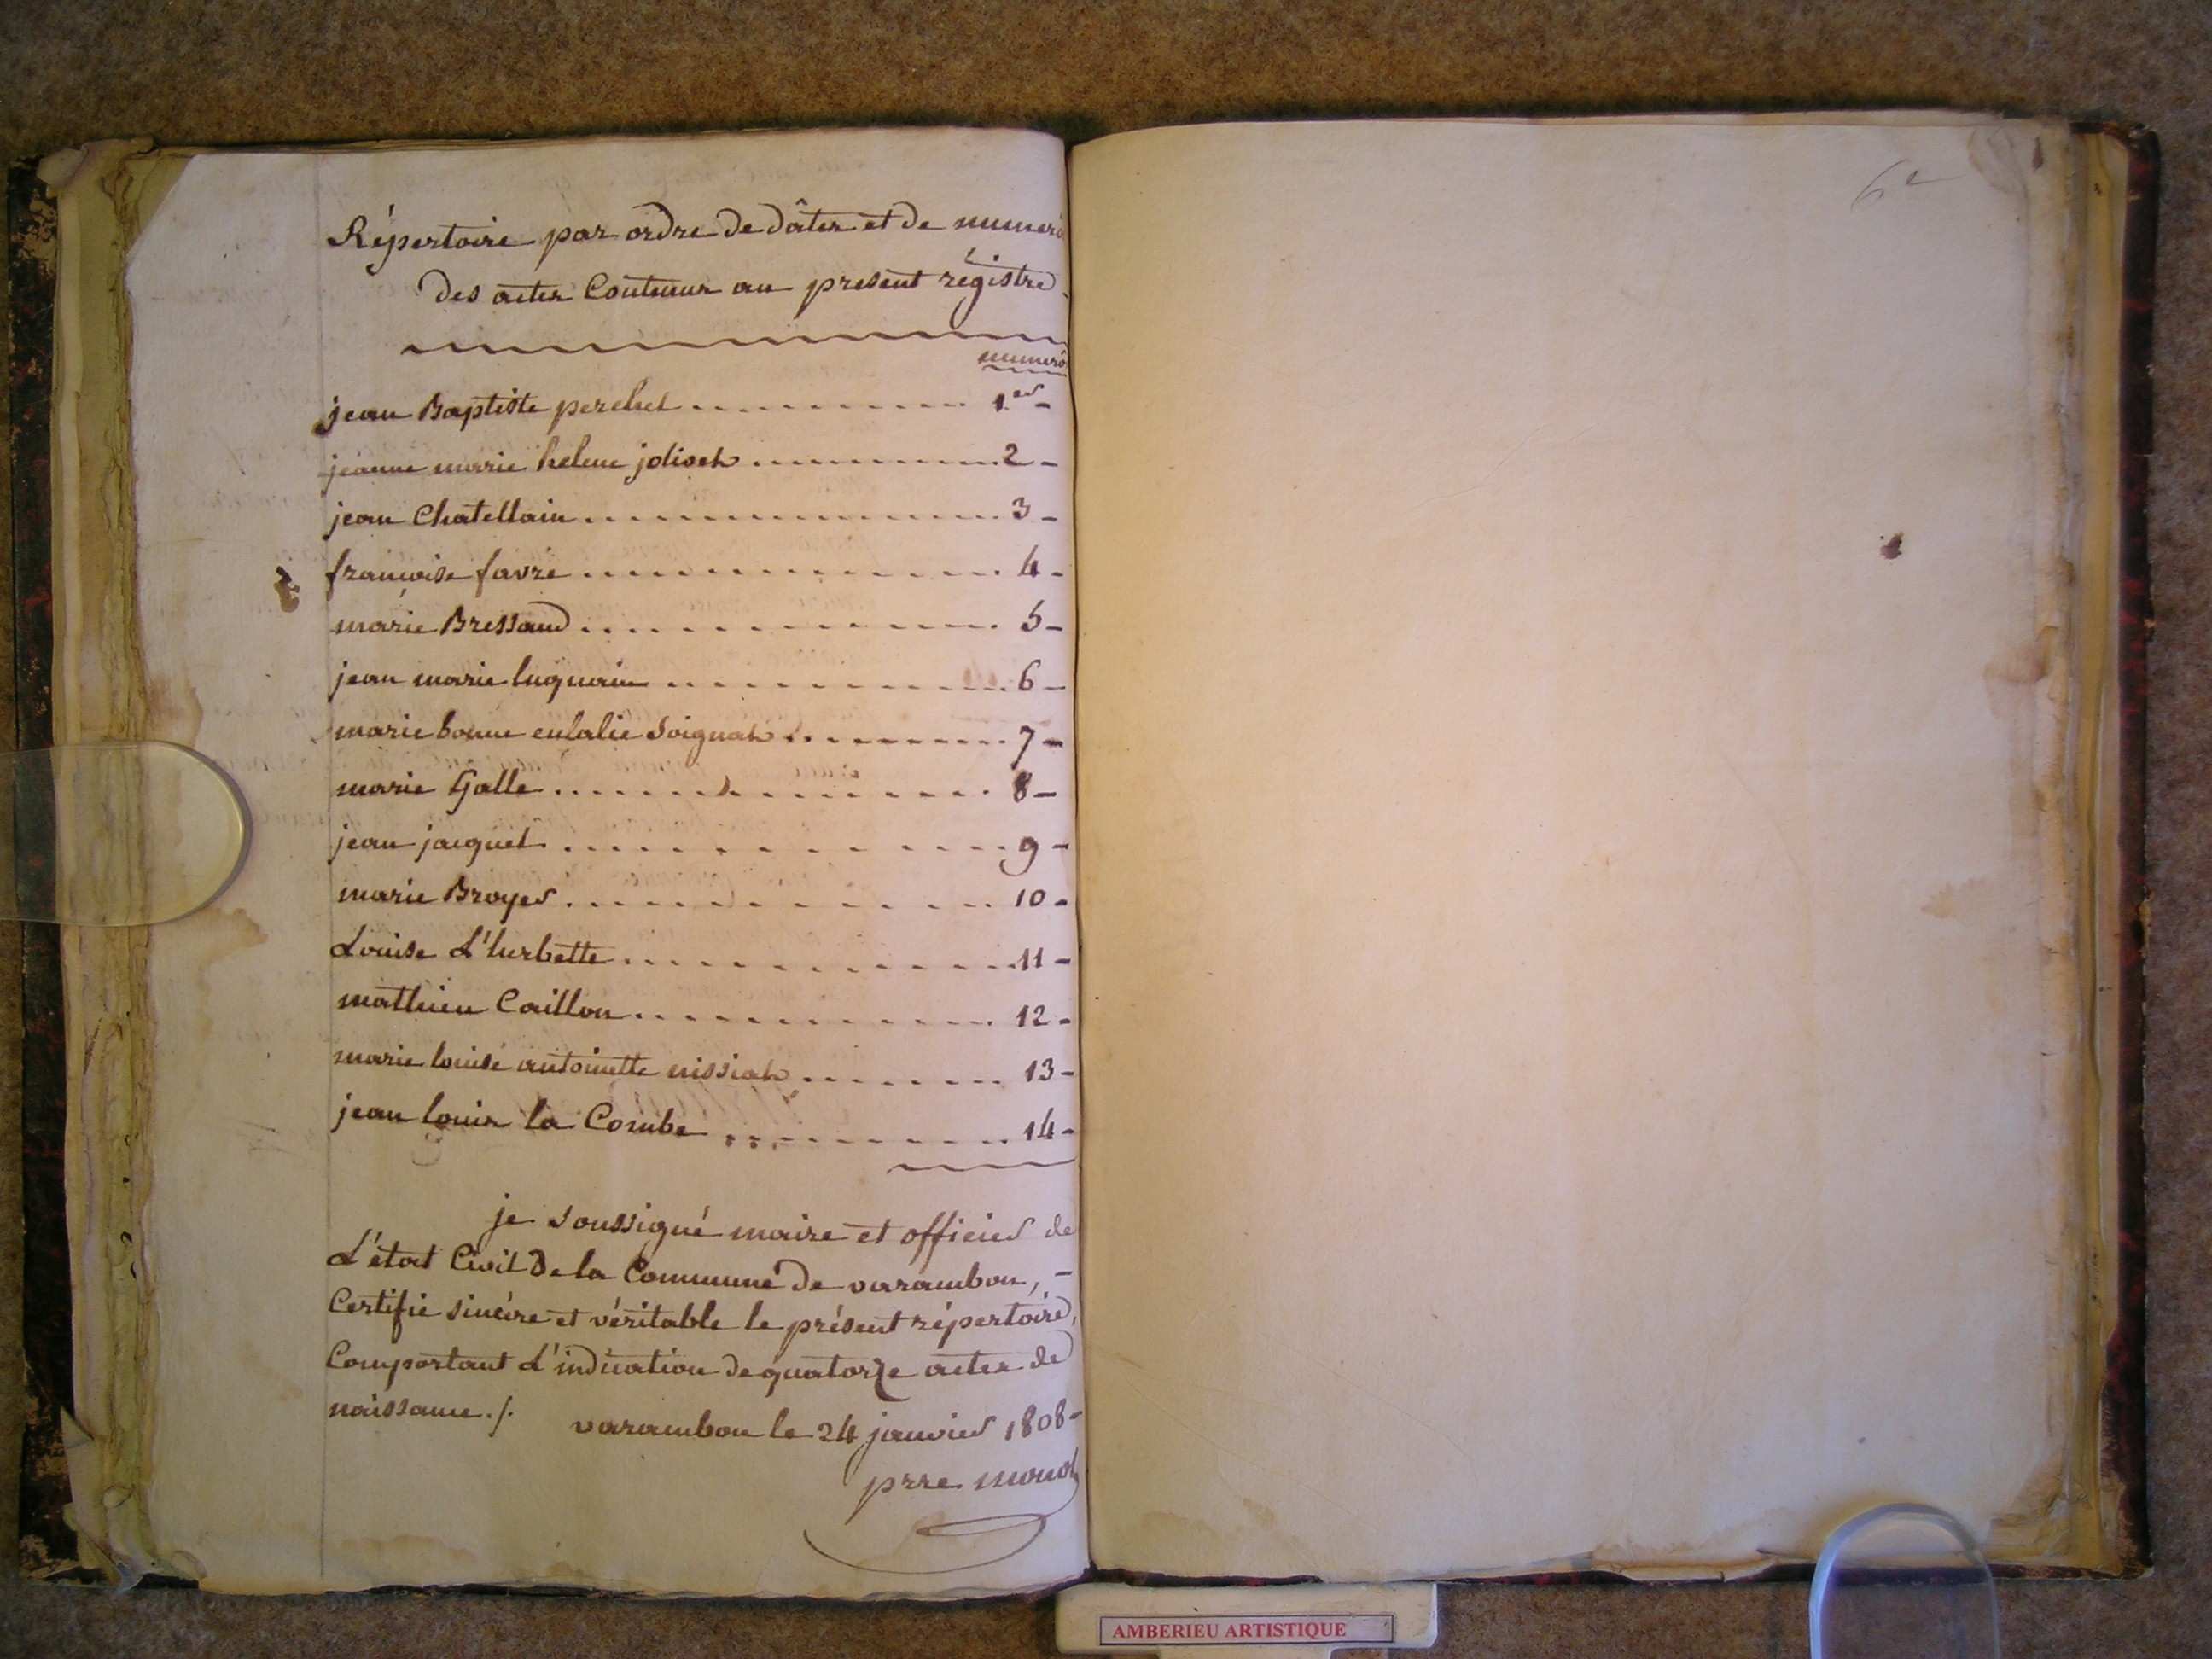 Répertoire par ordre de dâtes et de numero
des actes Contenus au present régistre
numero
jean Baptiste perchet 1er
jeanne marie helene jolivet 2
jean Chatellain 3
françoise favre 4
marie Bressand 5
jean marie luquain 6
marie bonne eulalie Soignat 7
marie Galle 8
jean jacquet 9
marie Broyer 10
Louise L'herbette 11
mathieu Caillon 12
marie louise antoinette nissiat 13
jean louis la Combe 14
je soussigné maire et officier de
L'état Civil de la Commune de varambon, -
Certifie sincère et véritable le présent répertoire,
Comportant L'indication de quatorze actes de
naissance ./.
varambon le 24 janvier 1808 -
prre monod
AMBERIEU ARTISTIQUE